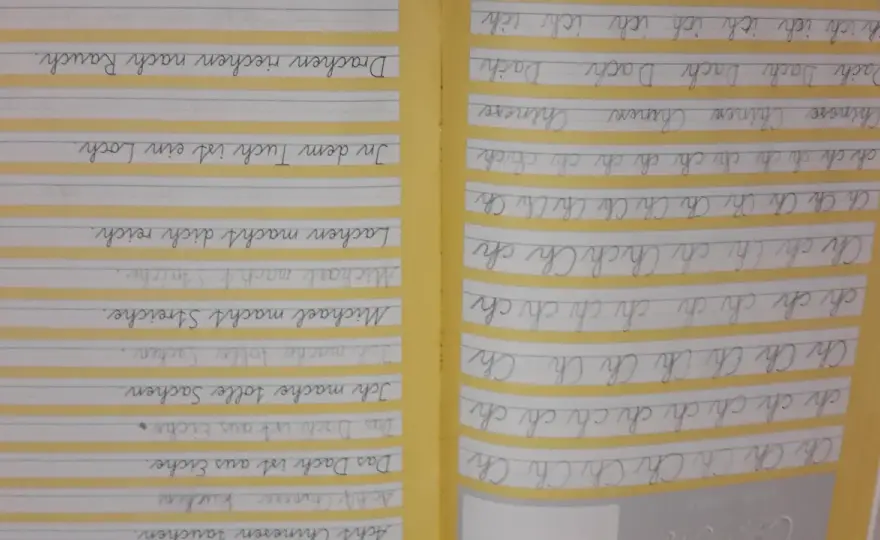 Ch Ch Ch Ch Ch Ch Ch Ch
ch ch ch ch ch ch ch ch
Ch Ch Ch Ch Ch Ch Ch
ch ch ch ch ch ch ch ch
Ch ch Ch ch Ch ch Ch ch
Ch Ch Ch Ch Ch Ch Ch Ch Ch
ch ch ch ch ch ch ch ch ch
Chinese Chinese
Dach Dach Dach Dach Dach
ich ich ich ich ich ich ich
Acht Chinesen tauchen.
Das Dach ist aus Eiche.
Das Dach ist aus Eiche.
Ich mache tolle Sachen.
Ich mache tolle Sachen.
Michael macht Streiche.
Michael macht Streiche.
Lachen macht dich reich.
In dem Tuch ist ein Loch.
Drachen riechen nach Rauch.